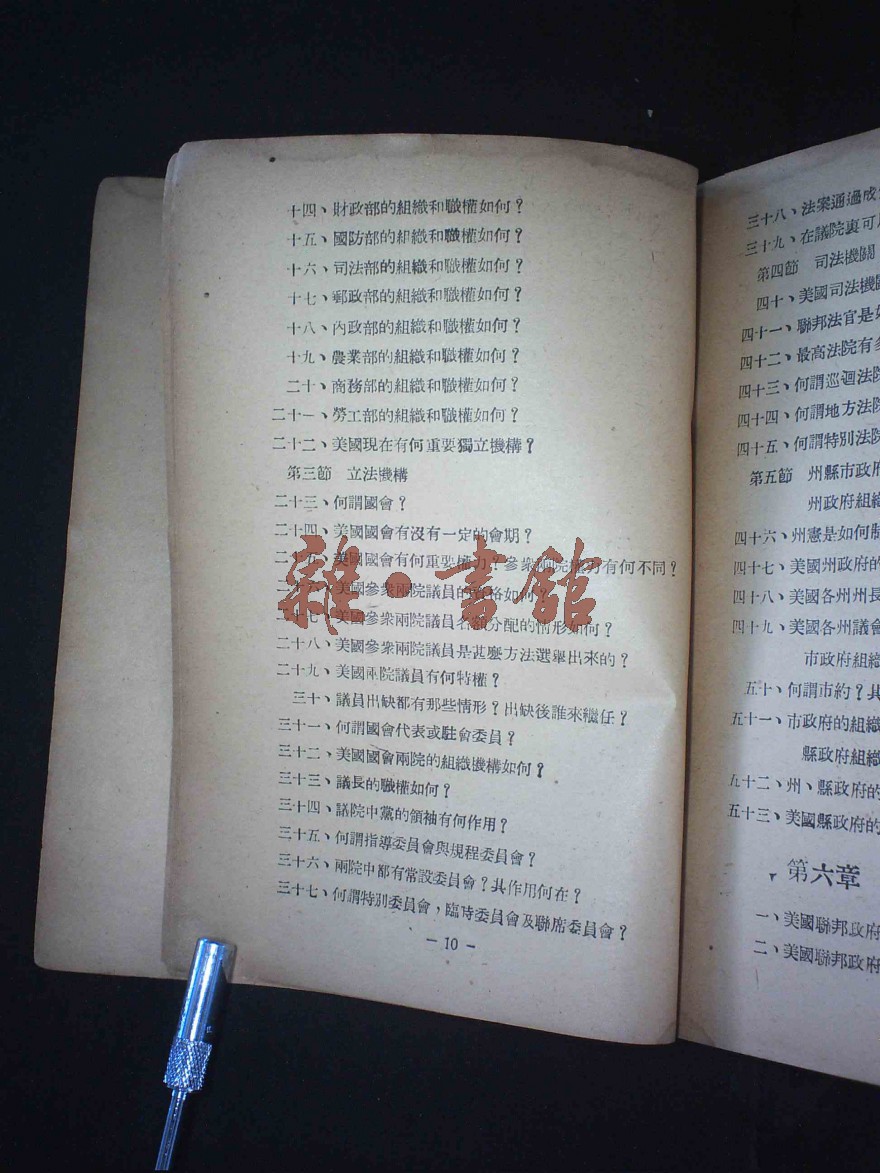 十四、財政部的組織和職權如何？
十五、國防部的組織和職權如何？
十六、司法部的組織和職權如何？
十七、郵政部的組織和職權如何？
十八、內政部的組織和職權如何？
十九、農業部的組織和職權如何？
二十、商務部的組織和職權如何？
二十一、勞工部的組織和職權如何？
二十二、美國現在有何重要獨立機構？
第三節　立法機構
二十三、何謂國會？
二十四、美國國會有沒有一定的會期？
二十五、美國國會有何重要權力？參衆兩院權力有何不同？
二十六、美國參衆兩院議員的資格如何？
二十七、美國參衆兩院議員名額分配的情形如何？
二十八、美國參衆兩院議員是甚麼方法選舉出來的？
二十九、美國兩院議員有何特權？
三十、議員出缺都有那些情形？出缺後誰來繼任？
三十一、何謂國會代表或駐會委員？
三十二、美國國會兩院的組織機構如何？
三十三、議長的職權如何？
三十四、議院中黨的領袖有何作用？
三十五、何謂指導委員會與規程委員會？
三十六、兩院中都有常設委員會？其作用何在？
三十七、何謂特別委員會，臨時委員會及聯席委員會？
— 10 —
三十八、法案通過成
三十九、在議院裏可
第四節　司法機關
四十、美國司法機關
四十一、聯邦法官是如
四十二、最高法院有多
四十三、何謂巡迴法院
四十四、何謂地方法院
四十五、何謂特別法院
第五節　州縣市政府
州政府組織
四十六、州憲是如何制
四十七、美國州政府的
四十八、美國各州州長
四十九、美國各州議會
市政府組織
五十、何謂市約？其
五十一、市政府的組織
縣政府組織
五十二、州、縣政府的
五十三、美國縣政府的
第六章
一、美國聯邦政府
二、美國聯邦政府
雜·書館